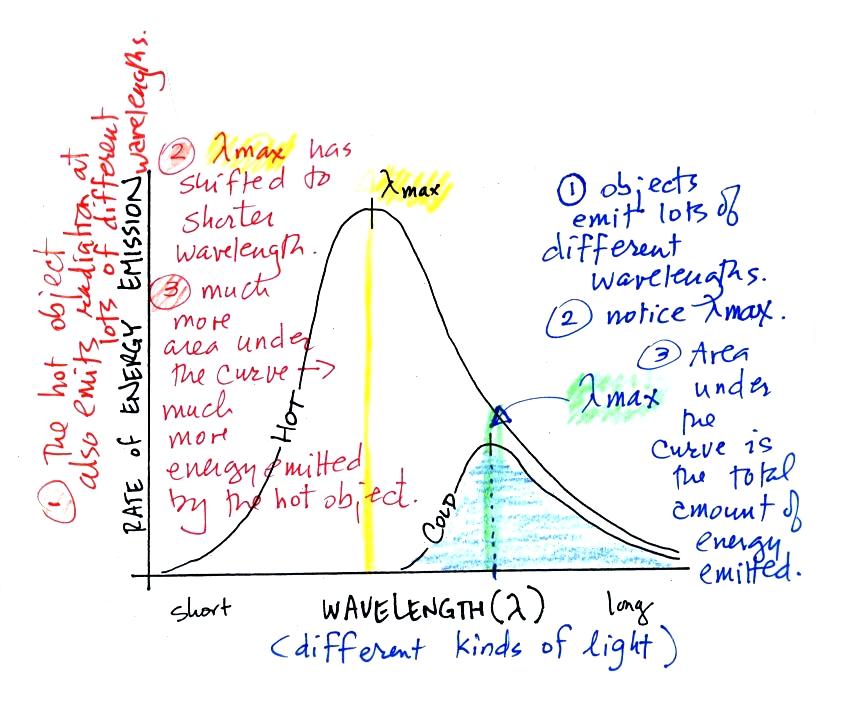 ① The hot object
also emits radiation at
lots of different
wavelengths.
② λmax has
shifted to
shorter
wavelength.
③ much
more
area under
the curve →
much
more
energy emitted
by the hot object.
RATE of ENERGY EMISSION
λmax
HOT
COLD
λmax
① objects
emit lots of
different
wavelengths.
② notice λmax.
③ Area
under
the
curve is
the total
amount of
energy
emitted.
short WAVELENGTH (λ) long
(different kinds of light)